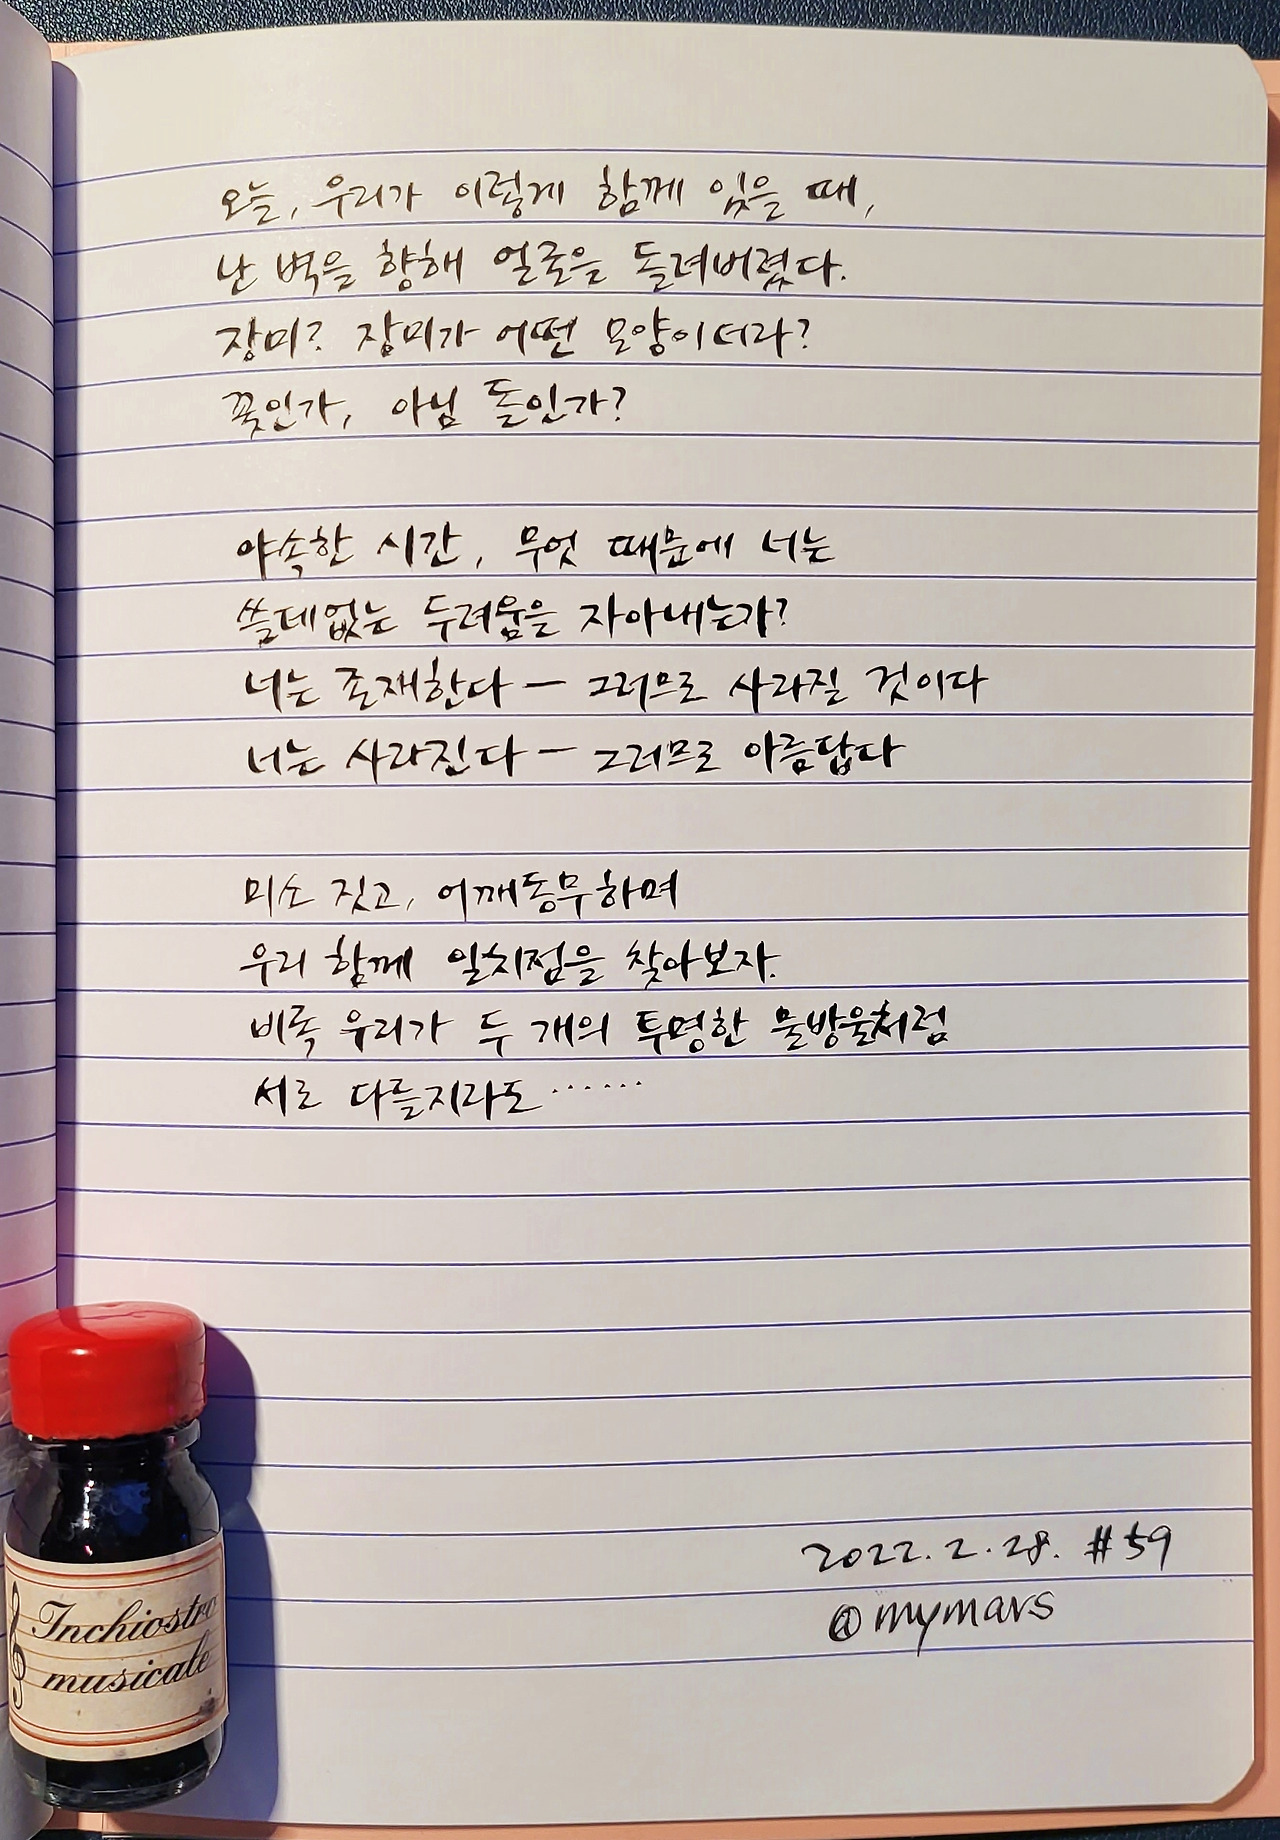 오늘, 우리가 이렇게 함께 있을 때,
난 벽을 향해 얼굴을 돌려버렸다.
장미? 장미가 어떤 모양이더라?
꽃인가, 아님 돌인가?
야속한 시간, 무엇 때문에 너는
쓸데없는 두려움을 자아내는가?
너는 존재한다 — 그러므로 사라질 것이다
너는 사라진다 — 그러므로 아름답다
미소 짓고, 어깨동무하며
우리 함께 일치점을 찾아보자.
비록 우리가 두 개의 투명한 물방울처럼
서로 다를지라도 ……
2022. 2. 28. #59
@mymars
Inchiostro
musicale